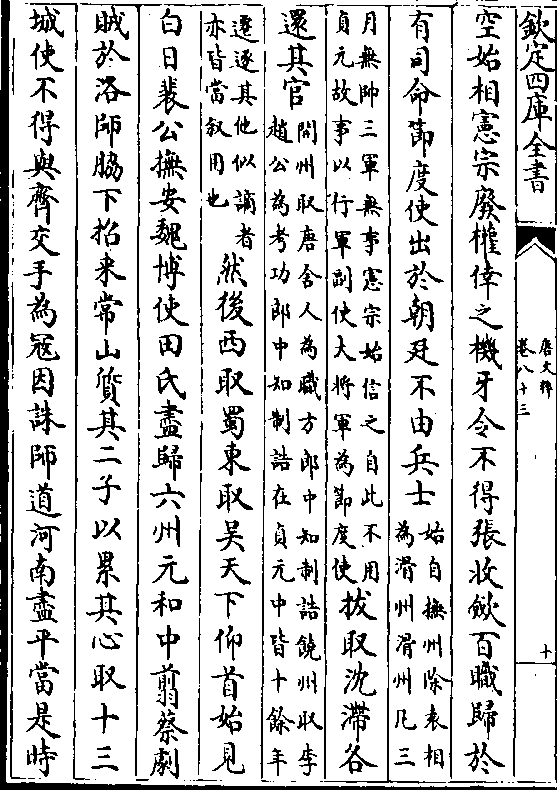 欽定四庫全書
唐文粹
卷八十三
十
空始相憲宗廢權倖之機牙令不得張收斂百職歸於
有司命節度使出於朝廷不由兵士
始自撫州除袁相
為滑州滑州凡三
月無帥三軍無事憲宗始信之自此不用
貞元故事以行軍副使大將軍為節度使
拔取沈滯各
還其官
問州取唐舍人為職方郎中知制誥饒州取李
趙公為考功郎中知制誥在貞元中皆十餘年
遷逐其他似謫者
亦皆當叙用也
然後西取蜀東取吳天下仰首始見
白日裴公撫安魏博使田氏盡歸六州元和中翦蔡劇
賊於洛師脇下招來常山質其二子以累其心取十三
城使不得與齊交手為寇因誅師道河南盡平當是時